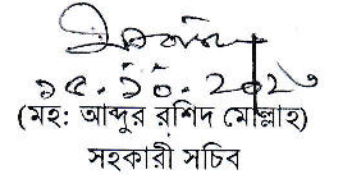 ১৫.১০.২০২৩
(মহ: আব্দুর রশিদ মোল্লাহ)
সহকারী সচিব